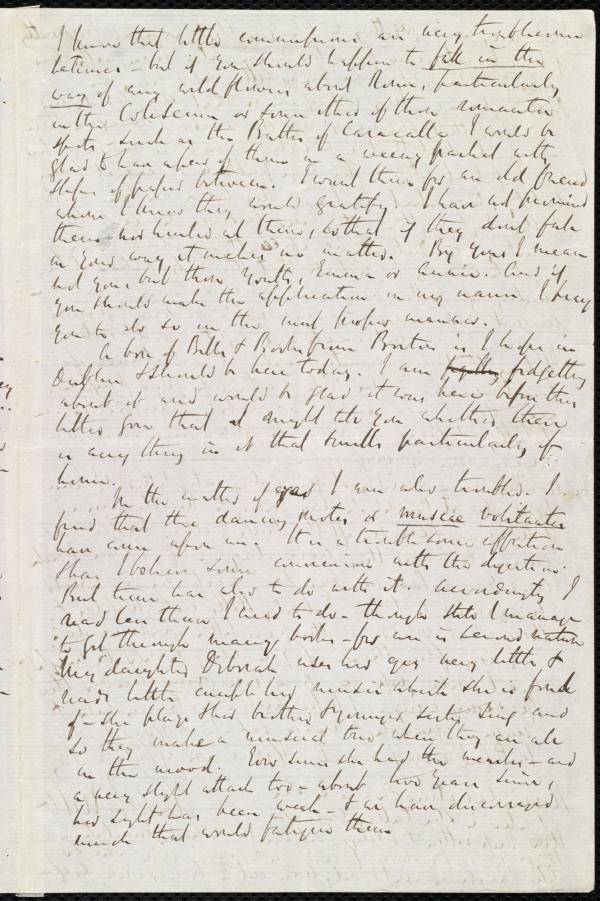 I know that little commissions are very troublesome
betimes - but if you should happen to fall in the
way of any wild flowers about Rome, particularly
in the Coliseum or some other of those romantic
spots - such as the Baths of Caracalla I would be
glad to have a few of them in a weeny packet with
slips of paper between. I want them for an old friend
whom I know they would gratify. I have not promised
them nor hinted at them, so that if they dont fall
in your way it makes no matter. By you I mean
not you, but those youths, Emma or Annie. And if
you should make the application in my name I pray
you to do so in the most proper manner.
A box of Bells & Books from Boston is I hope in
Dublin & should be here today. I am fidgetting
about it and would be glad it was here before this
letter goes that I might tell you whether there
is any thing in it that smells particularly of
home.
In the matter of eyes I am also troubled. I
find that the dancing motes or muscae volitantes
have come upon me. It is a troublesome affection
& has I believe some connexion with the digestion.
But them has also to do with it. Accordingly I
read less than I used to do - though still I manage
to get through many books - for use is second nature
My daughter Deborah uses her eyes very little &
reads little except her music which she is fond
of - she plays & her brother & younger sister sing and
so they make a musical trio when they are all
in the mood. Ever since she had the measles - and
a very slight attack too - about two years since,
her sight has been weak - & we have discouraged
much that would fatigue them